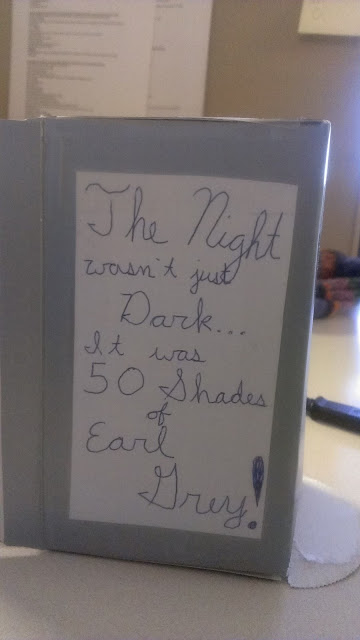 The Night
wasn't just
Dark...
It was
50 Shades
of
Earl
Grey!